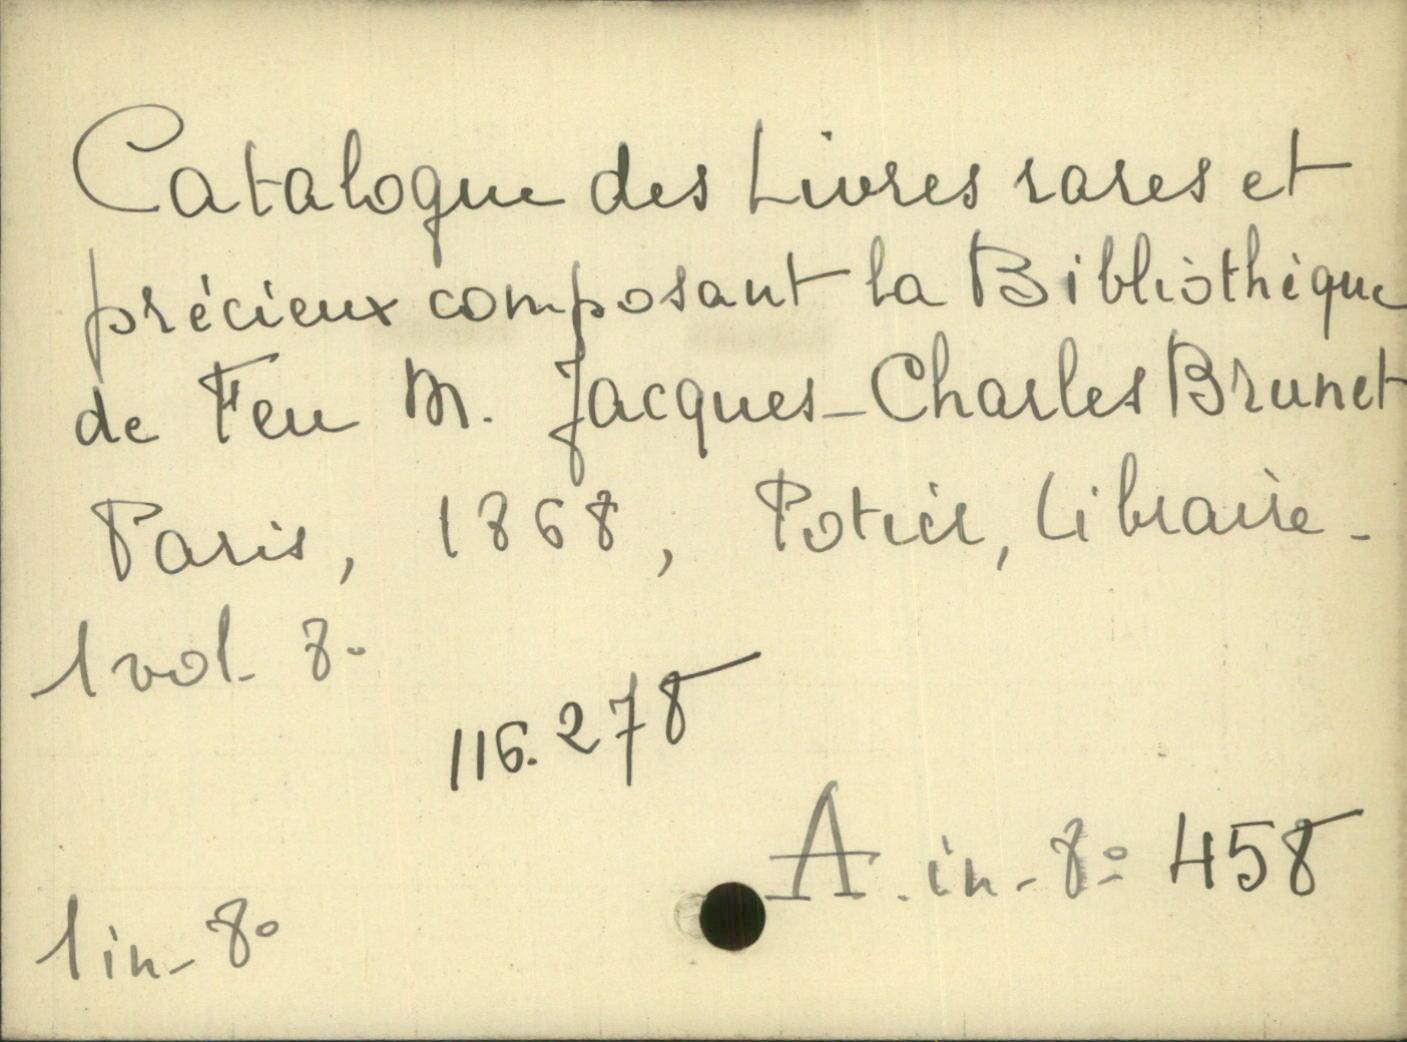 Catalogue des Livres rares et
précieux composant la Bibliothèque
de Feu M. Jacques-Charles Brunet
Paris, 1868, Potier, Libraire.
1 vol. 8°
116.278
A. in-8° 458
1 in-8°